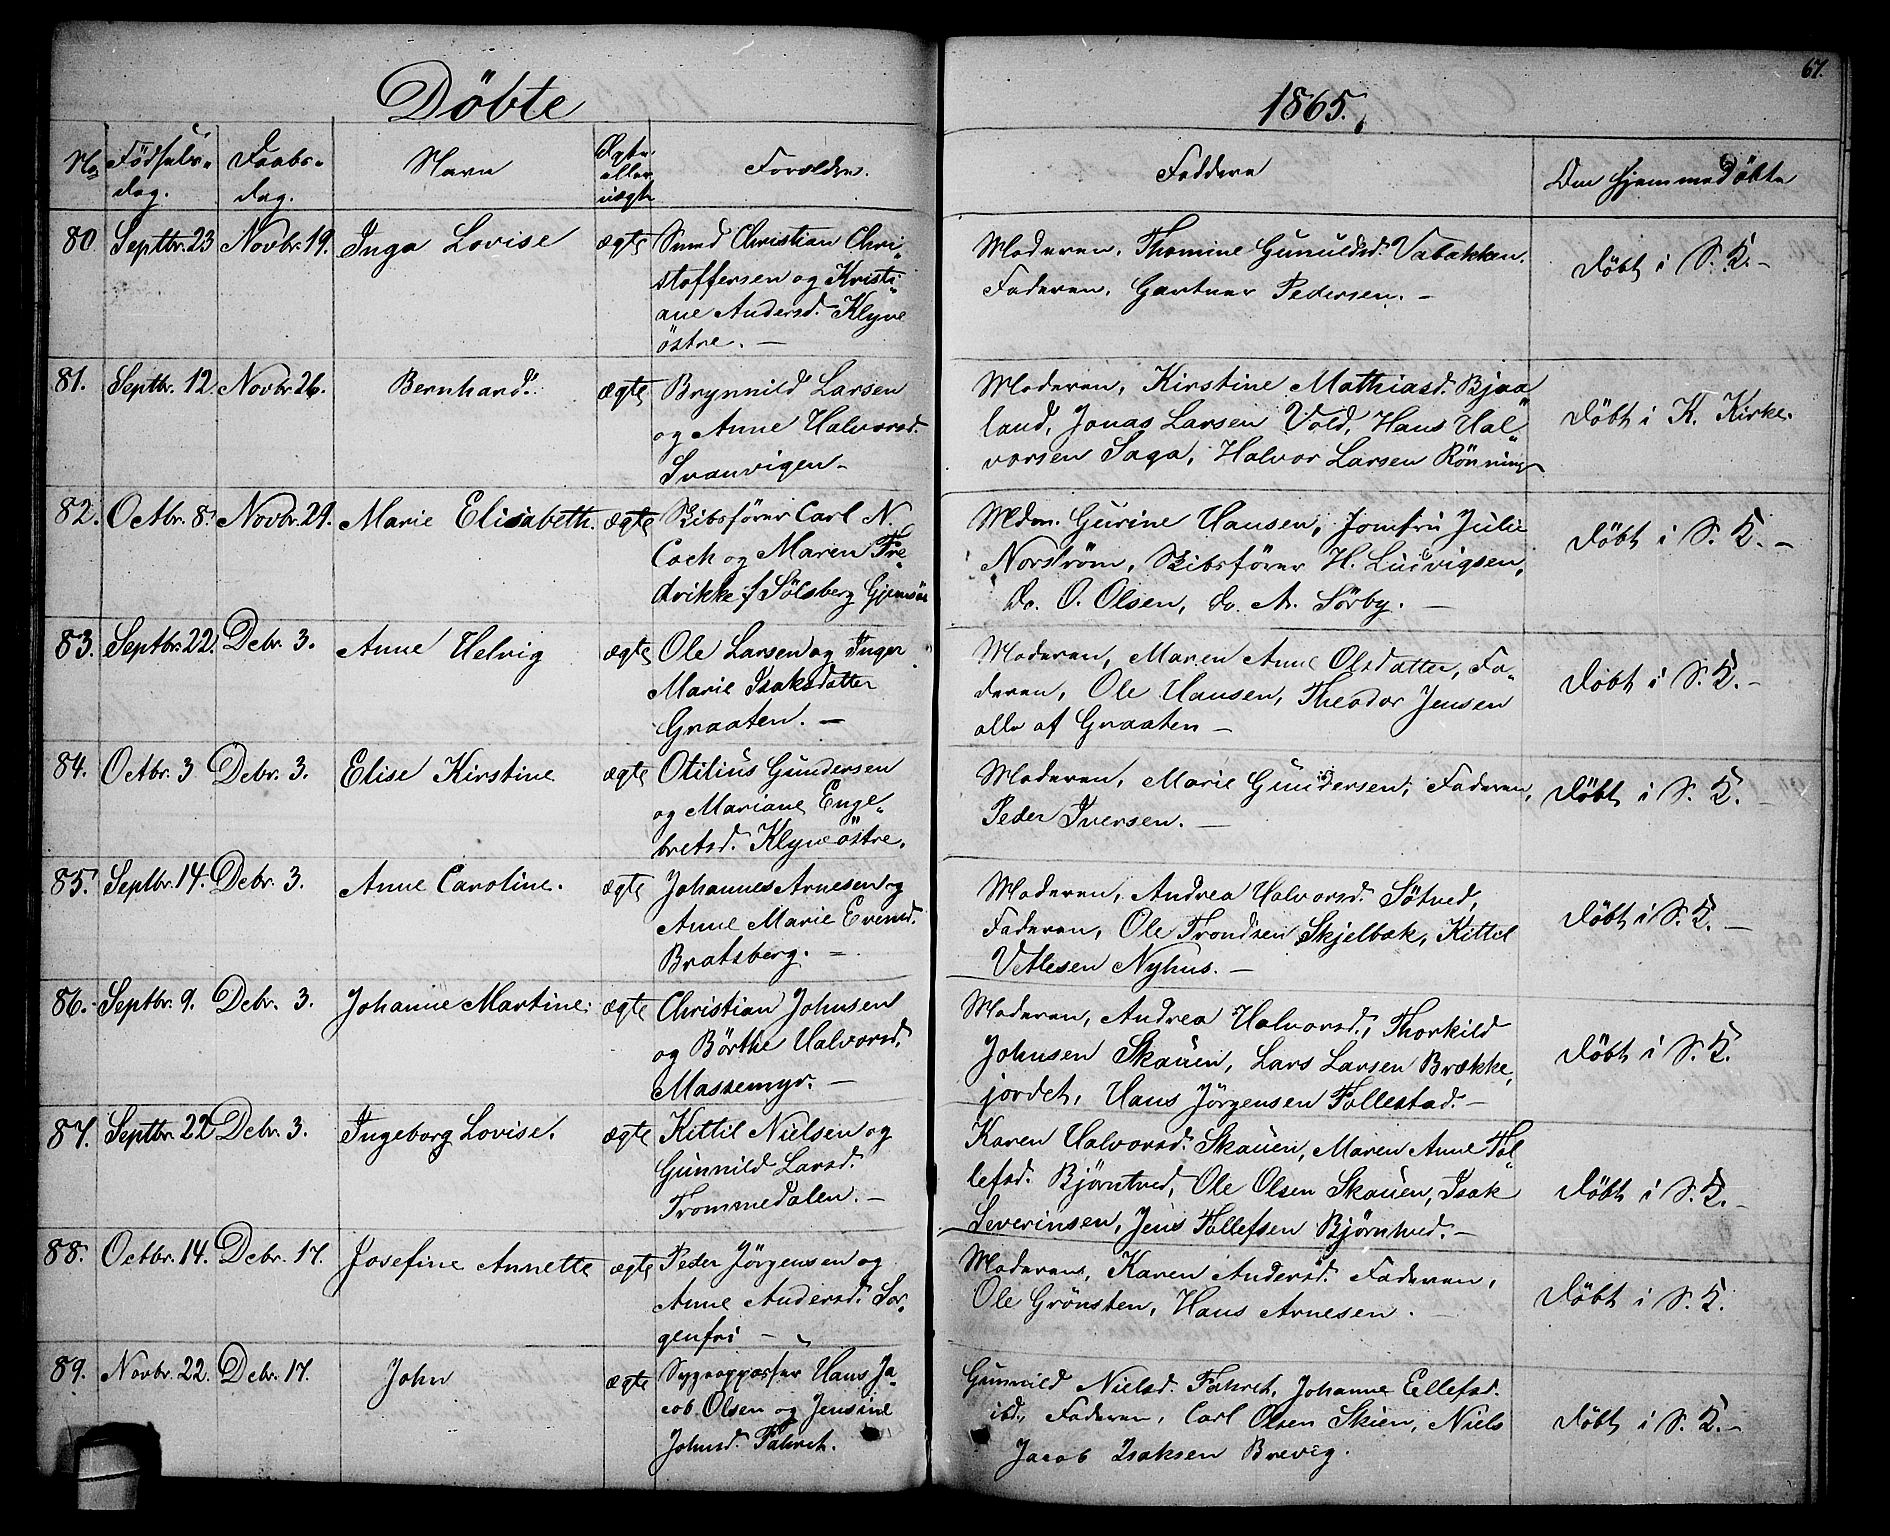 Döbte
1865.
67.
No
Födsels-
dag.
Daabs-
dag.
Navn
Ægte
eller
uægte
Forældre.
Faddere
Om hjemmedöbte
80. Septbr. 23 Novbr. 19. Inga Lovise ægte
Smed Christian Chri-
stoffersen og Kristi-
ane Andersd. Klyve
östre. —
Moderen, Thomine Gunuldsd. Vabakken.
Faderen, Gartner Pedersen. —
Döbt i S. K. —
81. Septbr. 12. Novbr. 26. Bernhard. ægte
Brynnild Larsen
og Anne Halvorsd.
Svanvigen —
Moderen, Kirstine Mathiasd. Bjaa-
land, Jonas Larsen Vold, Hans Hal-
vorsen Saga, Halvor Larsen Rönning
Döbt i K. Kirke.
82. Octbr. 8. Novbr. 29. Marie Elisabeth. ægte
Skibsförer Carl N.
Coch og Maren Fre-
drikke f. Sölsberg Gjemsöe
Mdm. Gurine Hansen, Jomfru Julie
Norström, Skibsförer H. Ludvigsen,
do. O. Olsen, do. A. Sörby. —
Döbt i S. K. —
83. Septbr. 22. Debr. 3. Anne Helvig ægte
Ole Larsen og Inger
Marie Isaksdatter
Graaten. —
Moderen, Maren Anne Olsdatter, Fa-
deren, Ole Hansen, Theodor Jensen
alle af Graaten —
Döbt i S. K. —
84. Octbr. 3 Debr. 3. Elise Kirstine ægte
Otilius Gundersen
og Mariane Enge-
bretsd. Klyve östre.
Moderen, Marie Gundersen, Faderen,
Peder Iversen. —
Döbt i S. K. —
85. Septbr. 14. Debr. 3. Anne Caroline. ægte
Johannes Arnesen og
Anne Marie Evensd.
Bratsberg. —
Moderen, Andrea Halvorsd. Sötved,
Faderen, Ole Trondsen Skjelbæk, Kittil
Vetlesen Nyhus. —
Döbt i S. K. —
86. Septbr. 9. Debr. 3. Johanne Martine. ægte
Christian Johnsen
og Börthe Halvorsd.
Massemyr. —
Moderen, Andrea Halvorsd., Thorkild
Johnsen Skauen, Lars Larsen Brække-
jordet, Hans Jörgensen Follestad. —
Döbt i S. K.
87. Septbr. 22 Debr. 3. Ingeborg Lovise. ægte
Kittil Nielsen og
Gunnild Larsd.
Trommedalen. —
Karen Halvorsd. Skauen, Maren Anne Tol-
lefsd. Bjørntved, Ole Olsen Skauen, Isak
Severinsen, Jens Tollefsen Bjørntved. —
Döbt i S. K. —
88. Octbr. 14. Debr. 17. Josefine Annette ægte
Peder Jörgensen og
Anne Andersd. Sor-
genfri —
Moderen, Karen Andersd. Faderen,
Ole Grönsten, Hans Arnesen.
Döbt i S. K.
89. Novbr. 22. Debr. 17. John ægte
Sygeoppasser Hans Ja-
cob Olsen og Jensine
Johnsd. Fahret.
Gunnild Nielsd. Fahret, Johanne Ellefsd.
ibd., Faderen, Carl Olsen Skien, Niels
Jacob Isaksen Brevig.
Döbt i S. K. —